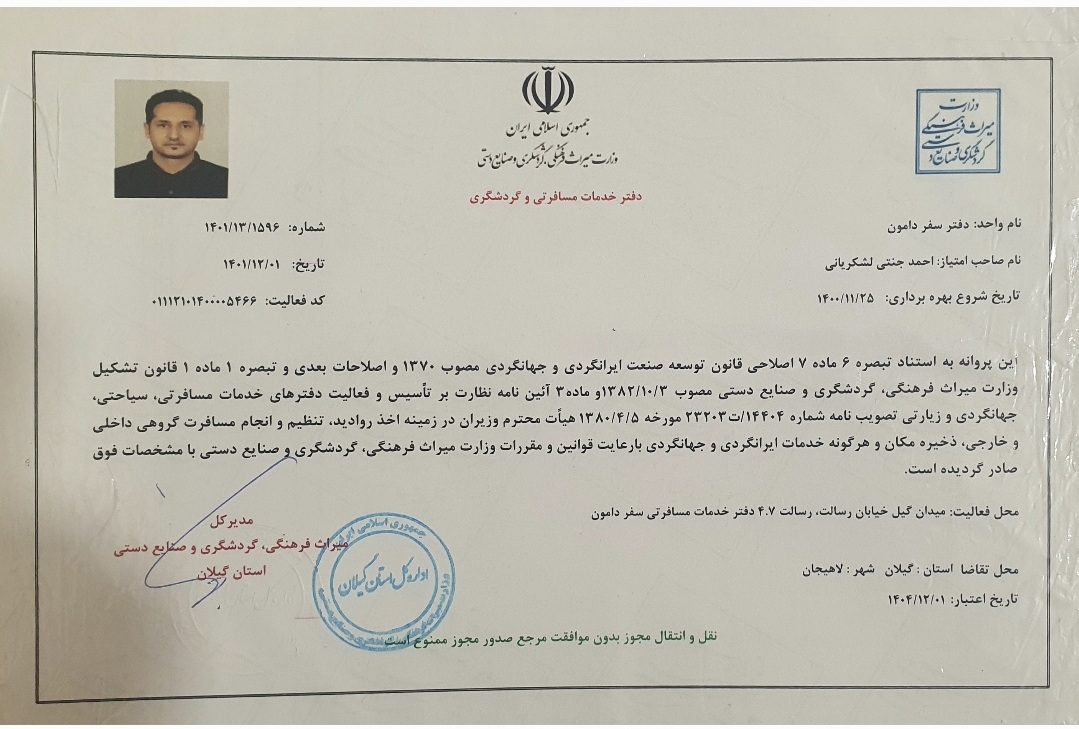 جمهوری اسلامی ایران
وزارت میراث فرهنگی، گردشگری و صنایع دستی
وزارت
میراث فرهنگی
گردشگری و صنایع دستی
دفتر خدمات مسافرتی و گردشگری
نام واحد: دفتر سفر دامون
شماره: ۱۴۰۱/۱۳/۱۵۹۶
نام صاحب امتیاز: احمد جنتی لشکریانی
تاریخ: ۱۴۰۱/۱۲/۰۱
تاریخ شروع بهره برداری: ۱۴۰۰/۱۱/۲۵
کد فعالیت: ۰۱۱۱۲۱۰۱۴۰۰۰۰۵۴۶۶
این پروانه به استناد تبصره ۶ ماده ۷ اصلاحی قانون توسعه صنعت ایرانگردی و جهانگردی مصوب ۱۳۷۰ و اصلاحات بعدی و تبصره ۱ ماده ۱ قانون تشکیل
وزارت میراث فرهنگی، گردشگری و صنایع دستی مصوب ۱۳۸۲/۱۰/۳و ماده۳ آئین نامه نظارت بر تأسیس و فعالیت دفترهای خدمات مسافرتی، سیاحتی،
جهانگردی و زیارتی تصویب نامه شماره ۱۴۴۰۴/ت۲۳۲۰۳ مورخه ۱۳۸۰/۴/۵ هیأت محترم وزیران در زمینه اخذ روادید، تنظیم و انجام مسافرت گروهی داخلی
و خارجی، ذخیره مکان و هرگونه خدمات ایرانگردی و جهانگردی بارعایت قوانین و مقررات وزارت میراث فرهنگی، گردشگری و صنایع دستی با مشخصات فوق
صادر گردیده است.
محل فعالیت: میدان گیل خیابان رسالت، رسالت ۴.۷ دفتر خدمات مسافرتی سفر دامون
مدیرکل
میراث فرهنگی، گردشگری و صنایع دستی
استان گیلان
جمهوری اسلامی ایران
اداره کل استان گیلان
محل تقاضا استان : گیلان شهر : لاهیجان
تاریخ اعتبار: ۱۴۰۴/۱۲/۰۱
نقل و انتقال مجوز بدون موافقت مرجع صدور مجوز ممنوع است